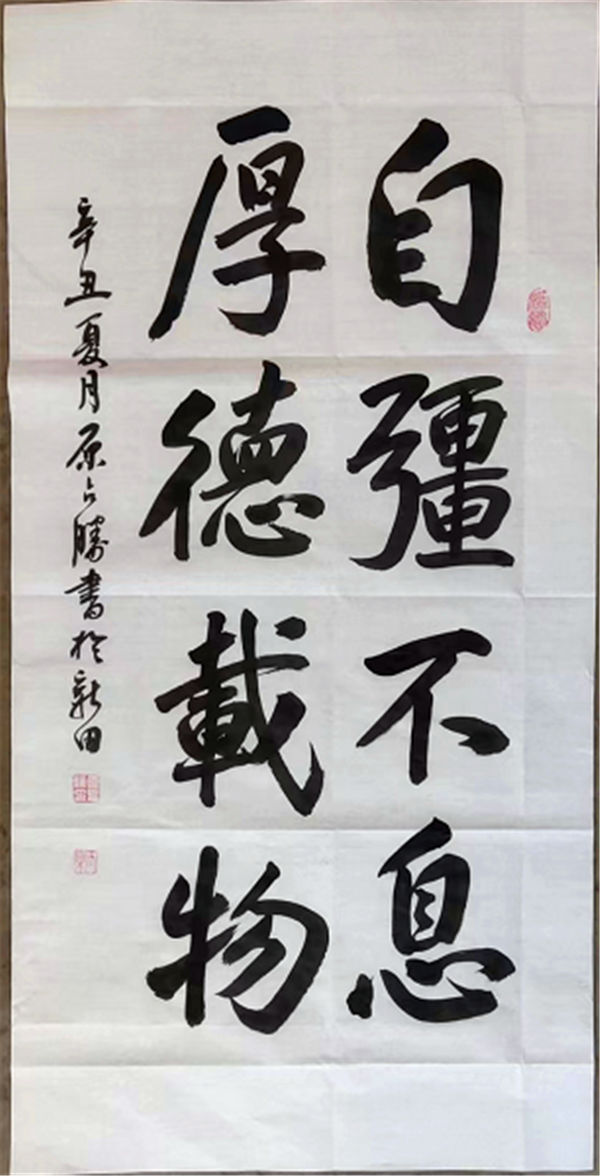 自彊不息
厚德載物
辛丑夏月原占勝書於新田